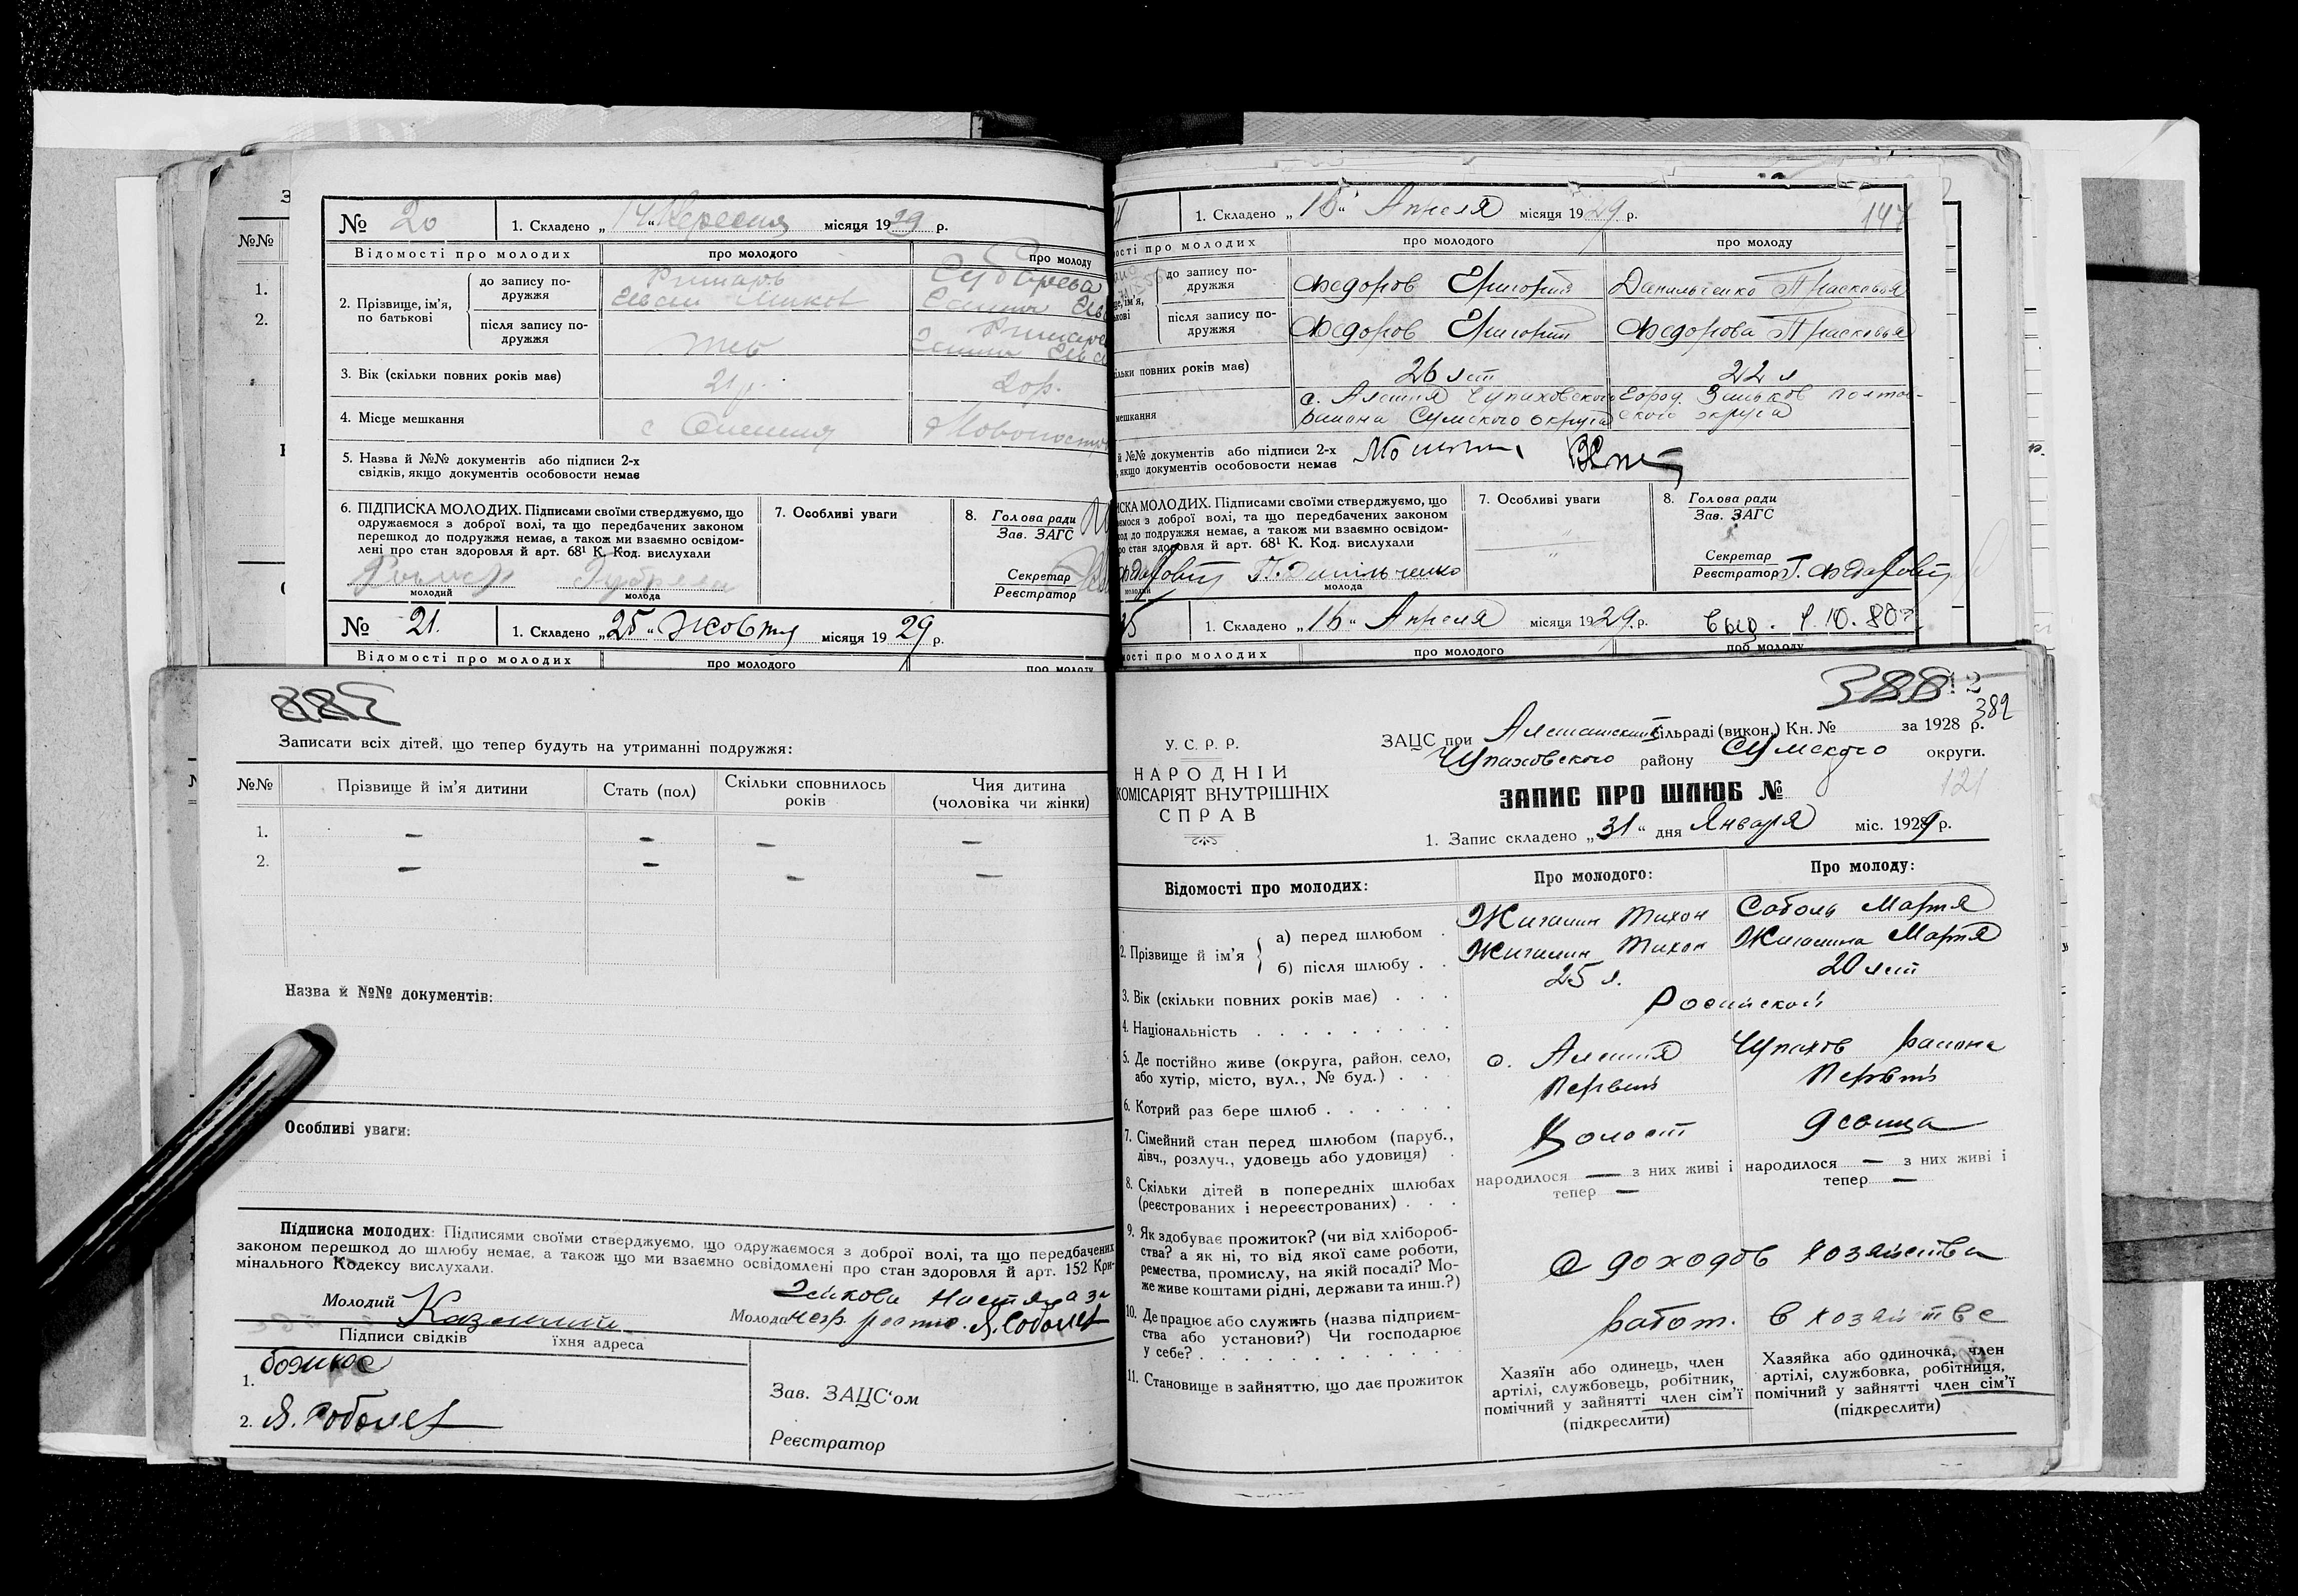 № 20
1. Складено „14“ Вересня місяця 1929 р.
Відомості про молодих
про молодого
про молоду
2. Прізвище, ім'я, по батькові
до запису по-
дружжя
після запису по-
дружжя
3. Вік (скільки повних років має)
21 р.
20 р.
4. Місце мешкання
5. Назва й №№ документів або підписи 2-х
свідків, якщо документів особовости немає
6. ПІДПИСКА МОЛОДИХ. Підписами своїми стверджуємо, що
одружаємося з доброї волі, та що передбачених законом
перешкод до подружжя немає, а також ми взаємно освідом-
лені про стан здоровля й арт. 68¹ К. Код. вислухали
молодий
молода
7. Особливі уваги
8. Голова ради
Зав. ЗАГС
Секретар
Реєстратор
№ 21.
1. Складено „25“ Жовтня місяця 1929 р.
Відомості про молодих
про молодого
про молоду
Записати всіх дітей, що тепер будуть на утриманні подружжя:
№№
Прізвище й ім'я дитини
Стать (пол)
Скільки сповнилось
років
Чия дитина
(чоловіка чи жінки)
1. — — — —
2. — — — —
Назва й №№ документів:
Особливі уваги:
Підписка молодих: Підписями своїми стверджуємо, що одружаємося з доброї волі, та що передбачених
законом перешкод до шлюбу немає, а також що ми взаємно освідомлені про стан здоровля й арт. 152 Кри-
мінального Кодексу вислухали.
Молодий
Молода
Підписи свідків їхня адреса
1.
2. Я. Соболев
Зав. ЗАЦС'ом
Реєстратор
1. Складено „16“ Апреля місяця 1929 р.
147
ості про молодих
про молодого
про молоду
до запису по-
дружжя
Федоров Григорий
Данильченко Прасковья
після запису по-
дружжя
Федоров Григорий
Федорова Прасковья
ільки повних років має)
26 лет
22 л
мешкання
с. Алешня Чупаховского
района Сумского округа
Город Зиньков Полтав-
ского округа
й №№ документів або підписи 2-х
, якщо документів особовости немає
ИСКА МОЛОДИХ. Підписами своїми стверджуємо, що
ємося з доброї волі, та що передбачених законом
од до подружжя немає, а також ми взаємно освідом-
ро стан здоровля й арт. 68¹ К. Код. вислухали
П. Данильченко
молодий
молода
7. Особливі уваги
8. Голова ради
Зав. ЗАГС
Секретар
Реєстратор
1. Складено „16“ Апреля місяця 1929 р.
выд. 1.10.80г.
ності про молодих
про молодого
про молоду
388
382
У. С. Р. Р.
НАРОДНІЙ
КОМІСАРІЯТ ВНУТРІШНІХ
СПРАВ
ЗАЦС при Алешанский сільраді (викон.) Кн. № за 1928 р.
Чупаховского району Сумского округи.
121
ЗАПИС ПРО ШЛЮБ №
1. Запис складено „31“ дня Января міс. 1929 р.
Відомості про молодих:
Про молодого:
Про молоду:
2. Прізвище й ім'я
а) перед шлюбом .
Жигалин Тихон
Соболь Марфя
б) після шлюбу . .
Жигалин Тихон
Жигалина Марфя
3. Вік (скільки повних років має) . . .
25 л.
20 лет
4. Національність . . . . . . . . .
Росийской
5. Де постійно живе (округа, район, село,
або хутір, місто, вул., № буд.) . . .
с. Алешня Чупахов района
6. Котрий раз бере шлюб . . . . . .
Первый
Первый
7. Сімейний стан перед шлюбом (паруб.,
дівч., розлуч., удовець або удовиця) .
Холост
девица
8. Скільки дітей в попередніх шлюбах
(реєстрованих і нереєстрованих) . . .
народилося — з них живі і
тепер —
народилося — з них живі і
тепер —
9. Як здобуває прожиток? (чи від хлібороб-
ства? а як ні, то від якої саме роботи,
ремества, промислу, на якій посаді? Мо-
же живе коштами рідні, держави та инш.?)
С доходов хозяйства
10. Де працює або служить (назва підприєм-
ства або установи?) Чи господарює
у себе? . . . . . . . . . . . .
работ. в хозяйстве
11. Становище в зайняттю, що дає прожиток
Хазяїн або одинець, член
артілі, службовець, робітник,
помічний у зайнятті член сім'ї
(підкреслити)
Хазяйка або одиночка, член
артілі, службовка, робітниця,
помічний у зайнятті член сім'ї
(підкреслити)